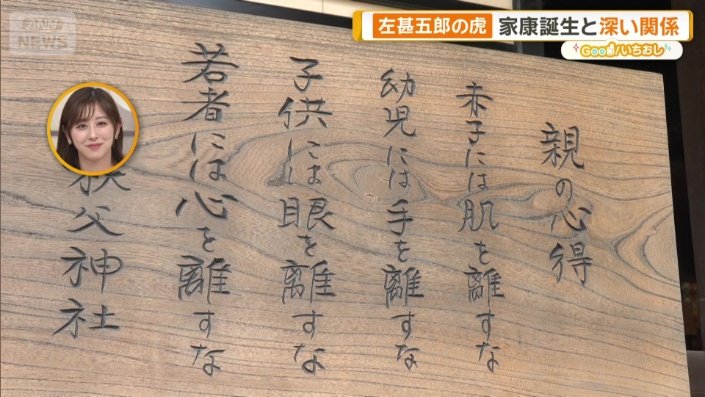 FANN
NEWS
左甚五郎の虎 家康誕生と深い関係
Good!いちおし
親の心得
赤子には肌を離すな
幼児には手を離すな
子供には眼を離すな
若者には心を離すな
秩父神社